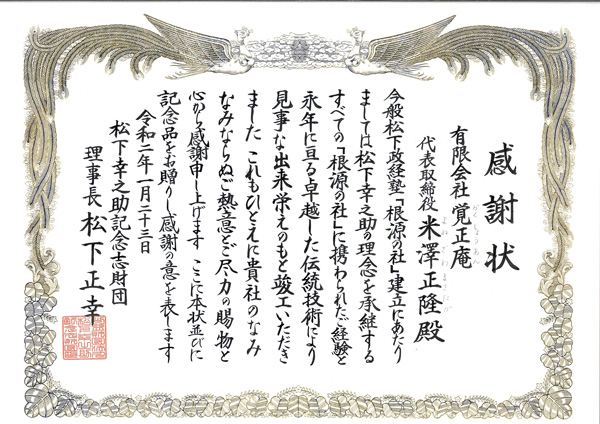 感謝状
有限会社 覚正庵
代表取締役 米澤正隆殿
今般松下政経塾「根源の社」建立にあたり
ましては松下幸之助の理念を承継する
すべての「根源の社」に携わられたご経験と
永年に亘る卓越した伝統技術により
見事な出来栄えのもと竣工いただき
ました これもひとえに貴社のなみ
なみならぬご熱意とご尽力の賜物と
心から感謝申し上げます ここに本状並びに
記念品をお贈りし感謝の意を表します
令和二年一月二十三日
松下幸之助記念志財団
理事長 松下正幸